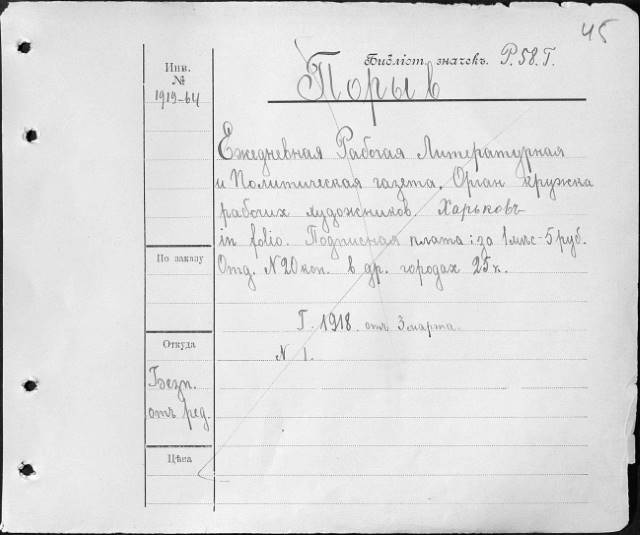 45
Библіот. значекъ. Р.58.Г.
Порыв
Инв.
№
1919-64
Ежедневная Рабочая Литературная
и Политическая газета. Орган кружка
рабочих художников. Харьковъ
in folio. Подписная плата: за 1 мѣс - 5 руб.
Отд. N 20 коп. в др. городах 25 к.
По заказу
Г. 1918. отъ 3 марта.
N 1.
Откуда
Безп.
отъ ред.
Цѣна